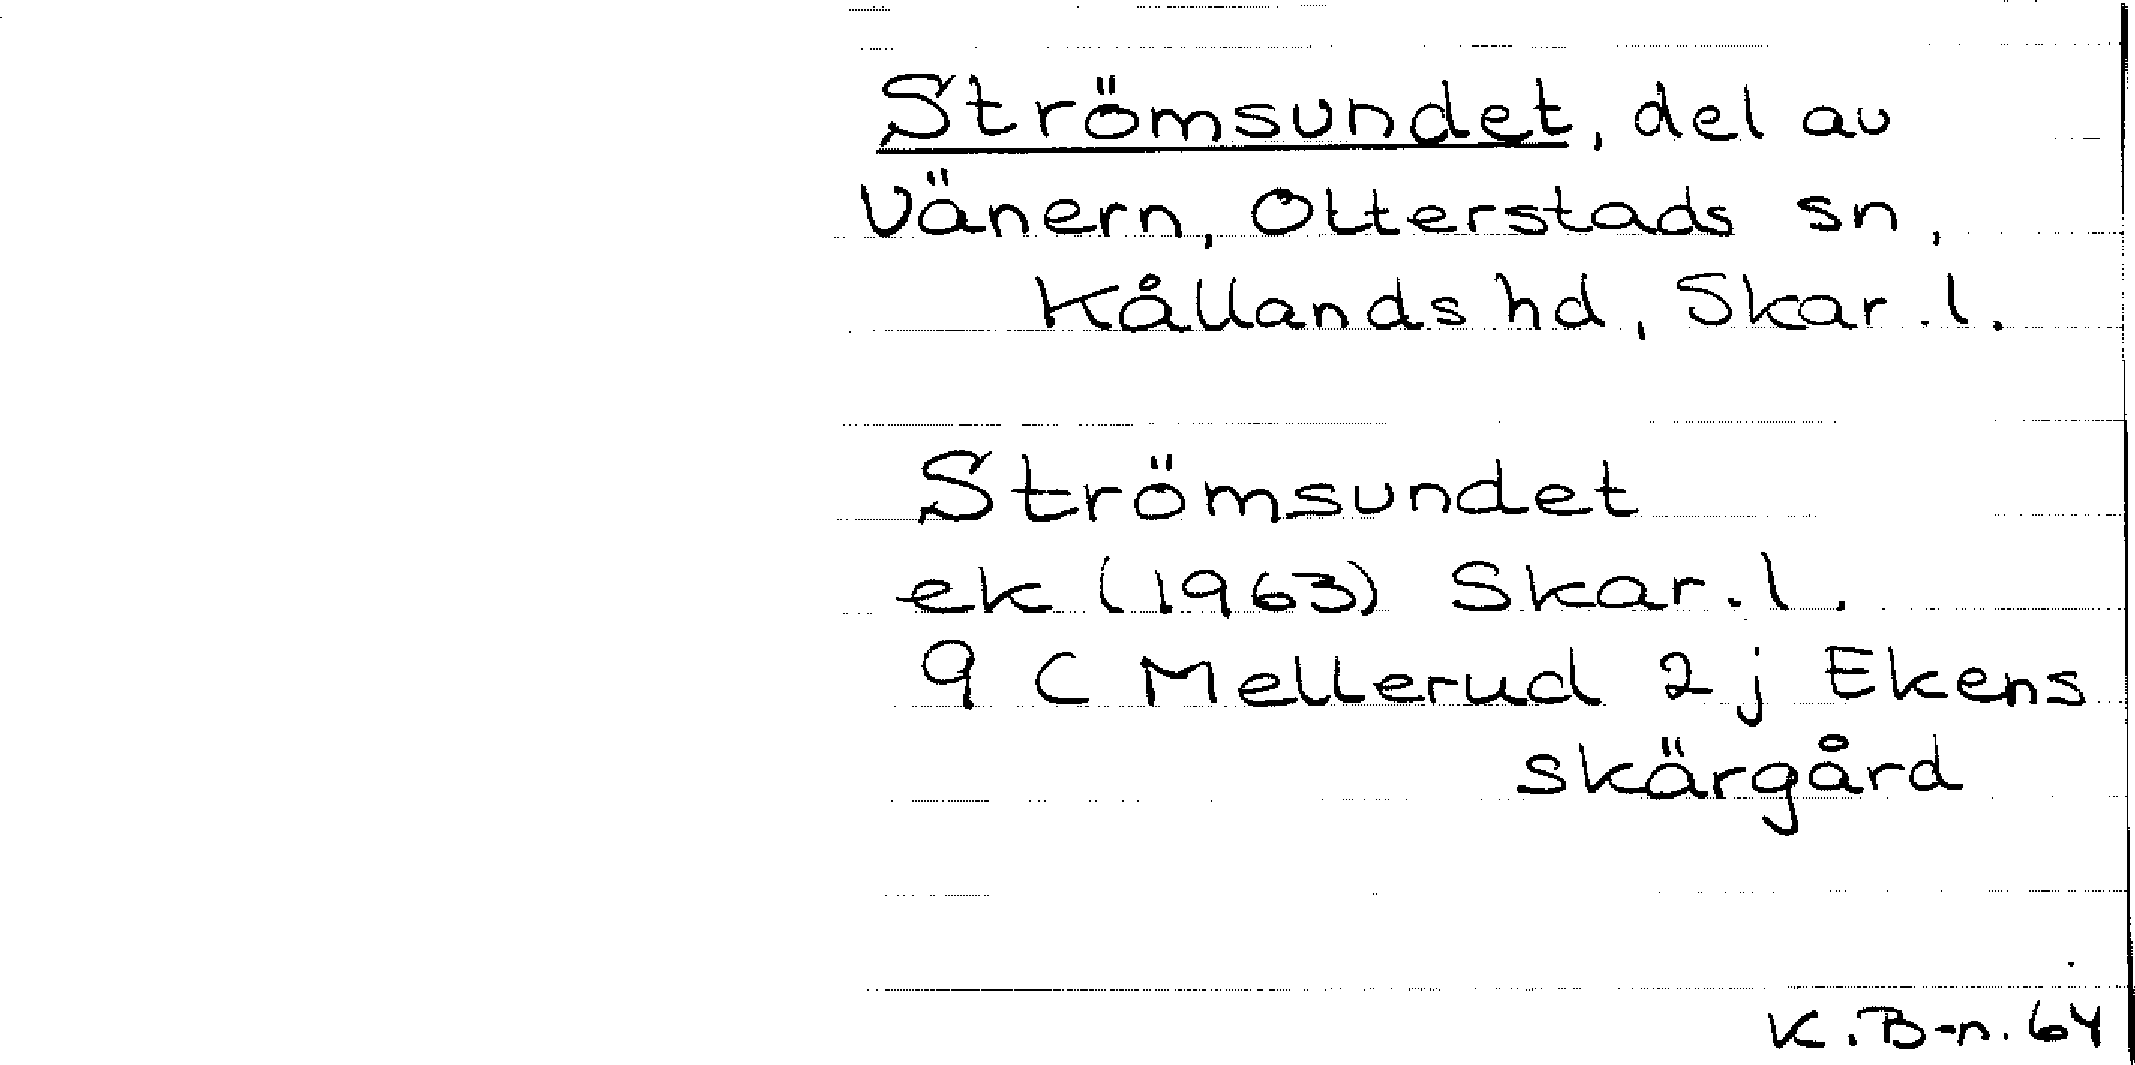 Strömsundet, del av
Vänern, Otterstads sn,
Kållands hd, Skar. l.
Strömsundet
ek (1963) Skar. l.
9 C Mellerud 2 j Ekens
skärgård
K. B-n. 64